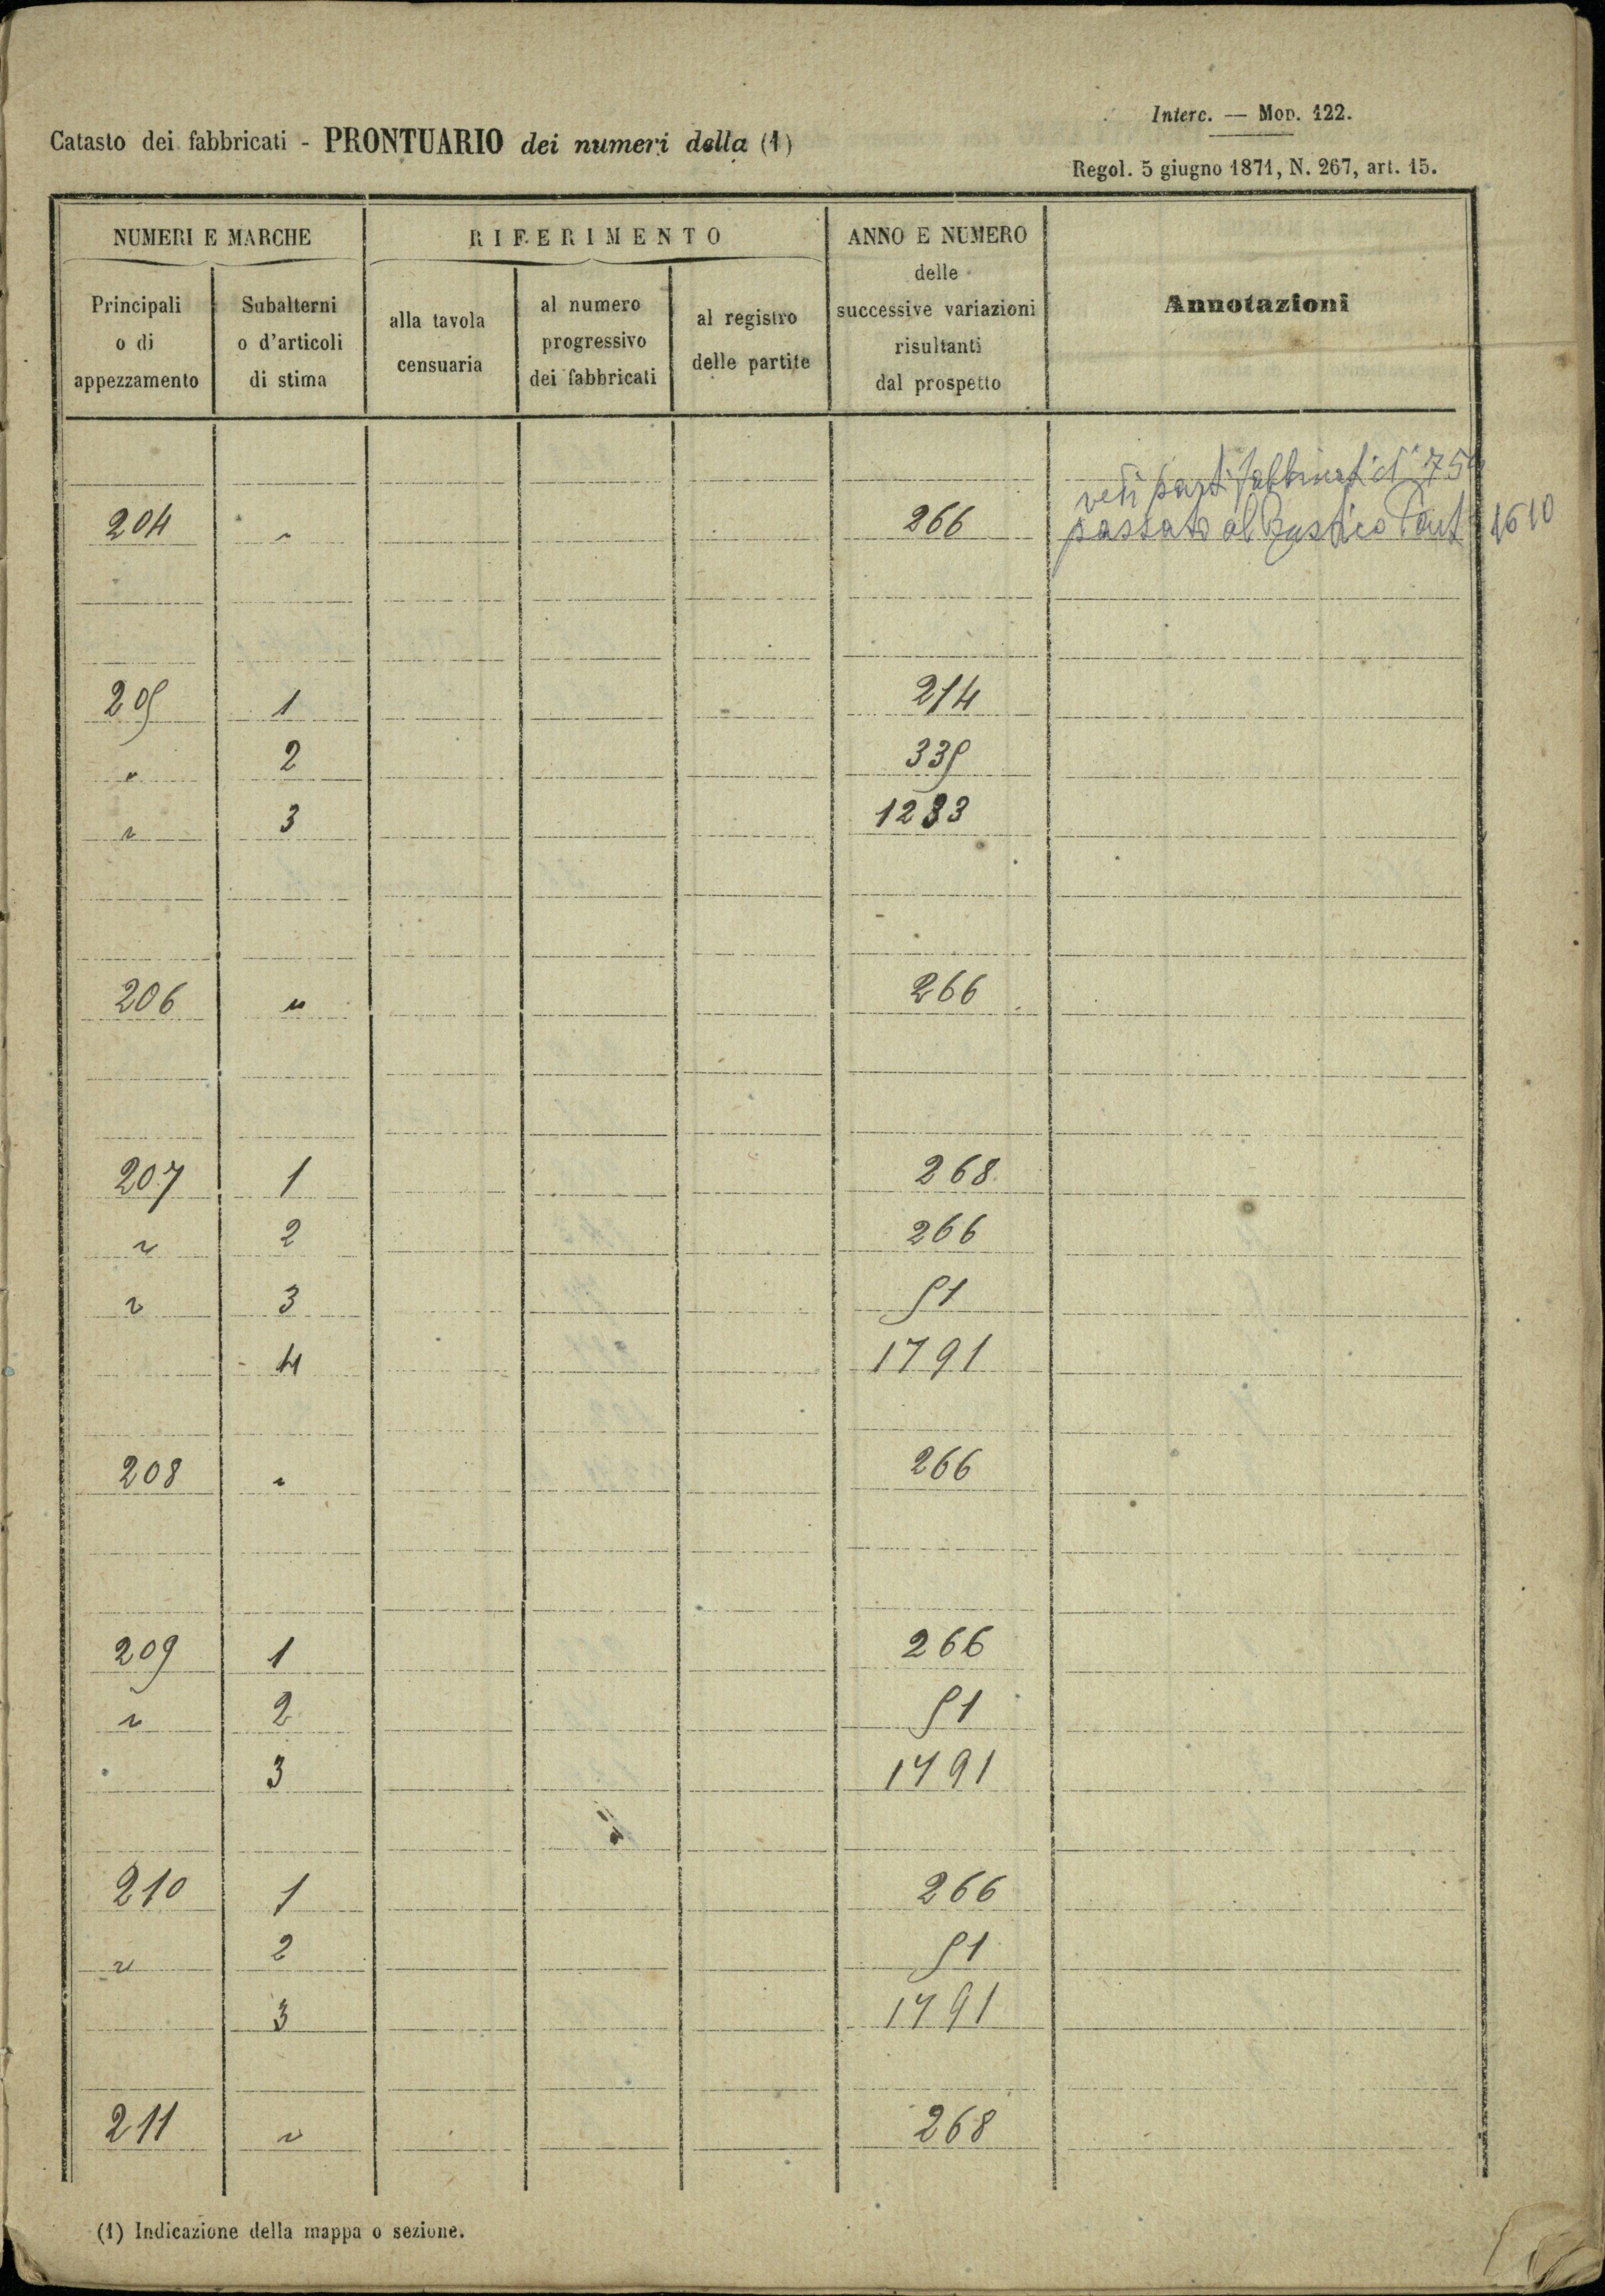 Interc. — Mod. 122.
Catasto dei fabbricati - PRONTUARIO dei numeri della (1)
Regol. 5 giugno 1871, N. 267, art. 15.
NUMERI E MARCHE RIFERIMENTO ANNO E NUMERO delle successive variazioni risultanti dal prospetto Annotazioni
Principali o di appezzamento Subalterni o d'articoli di stima alla tavola censuaria al numero progressivo dei fabbricati al registro delle partite
vedi part
204 " 266 passato al Rustico Part 1610
205 1 214
" 2 335
" 3 1233
206 " 266
207 1 268
" 2 266
" 3 51
4 1791
208 " 266
209 1 266
" 2 51
3 1791
210 1 266
" 2 51
3 1791
211 " 268
(1) Indicazione della mappa o sezione.